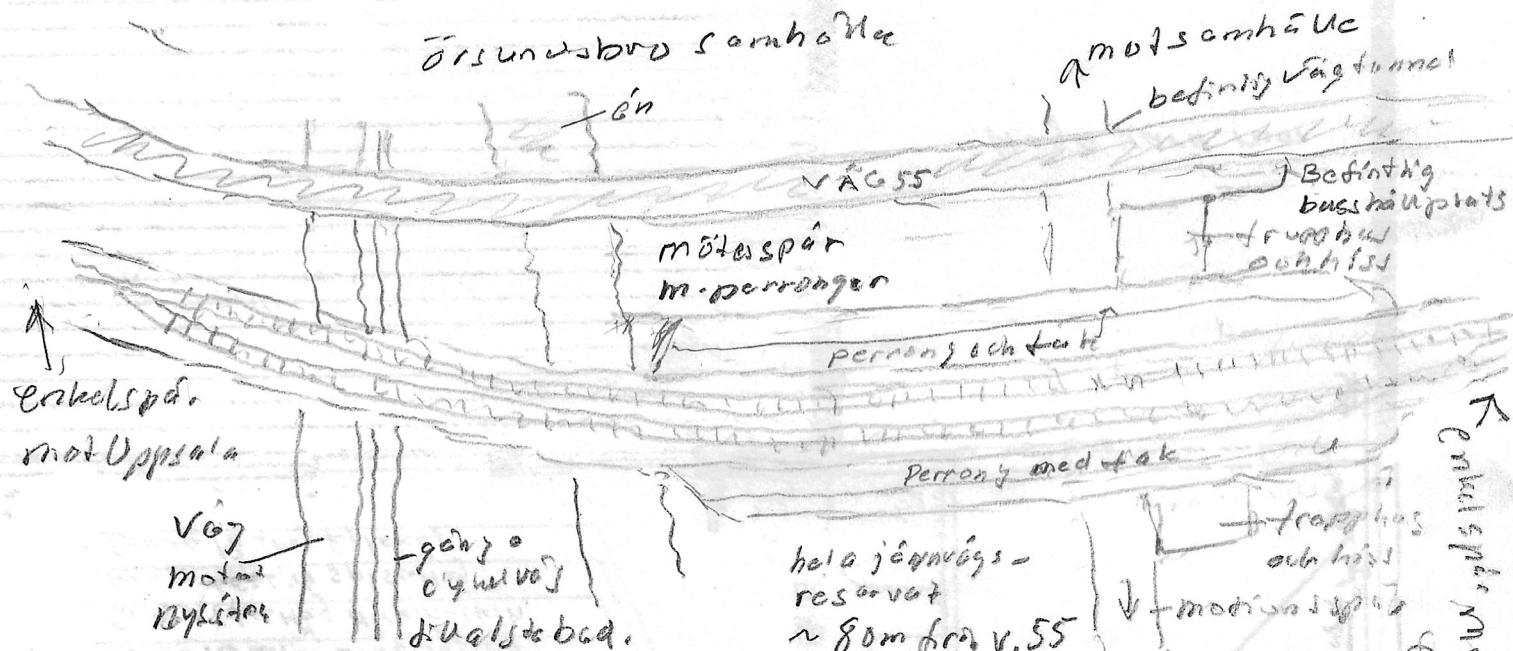 örsundsbro samhälle
mot samhälle
befintlig vägtunnel
ån
VÄG 55
Befintlig
busshållplats
trapphus
och hiss
mötesspår
m. perronger
perrong och tak
enkelspår
mot Uppsala
Perrong med tak
Väg
mot
gång o
cykelväg
hela järnvägs-
reservat
~ 80m från v. 55
trapphus
och hiss
motionsspår
enkelspår